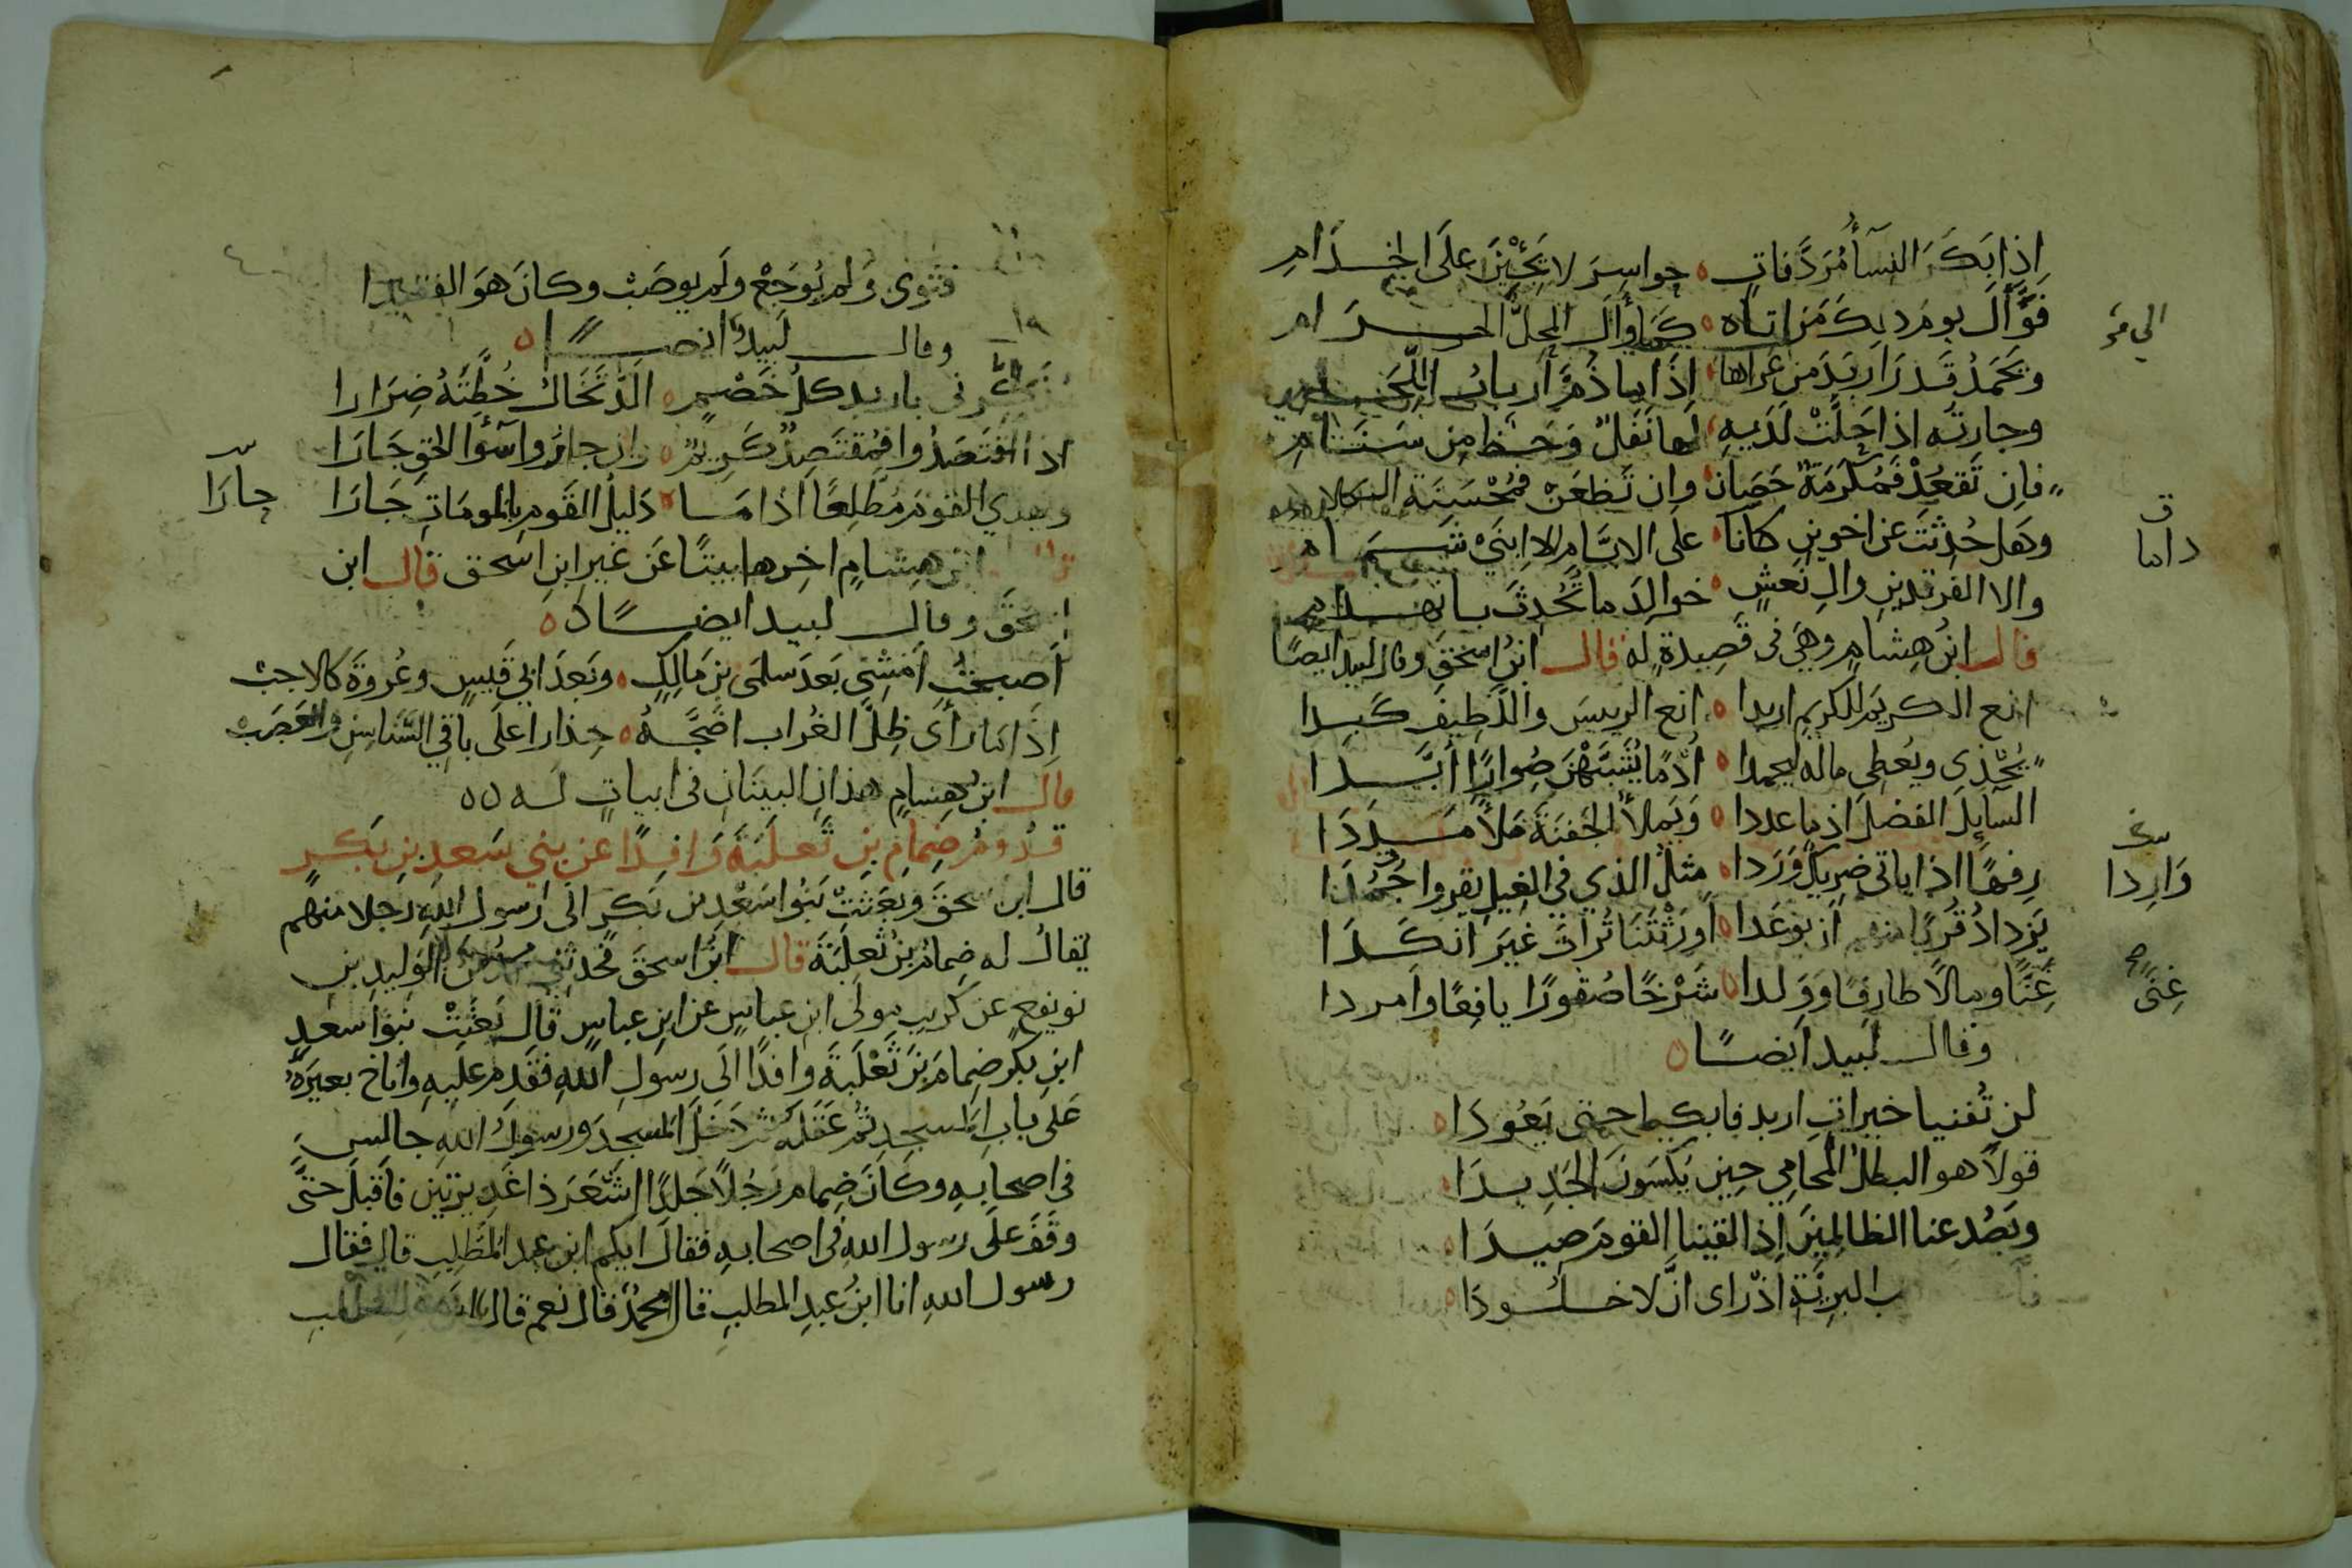 اِذا بَكَرَ النسآُ مُرَدَّفاتٍ ٥ حواسِرَ لا يَجِئْنَ عَلَى الخِدَامِ
فَوَأَلَ يومَ ذلِكَ مَن اتاهُ ٥ كَمَا وَأَلَ المُحِلُّ الى الحَرَامِ
ويَحْمَدُ قَدْرَ اربَدَ مَن عَراها ٥ اِذَا ما ذُمَّ اَربابُ اللِّحَامِ
وجارتُه اذا حَلَّتْ لَدَيهِ ٥ لها نَفَلٌ وَحَظٌ مِن سَنَامِ
فاِن تَقعُدْ فَمُكرَمَةٌ حَصَانٌ وان تَظعَنْ فمُحْسَنَة الكلام
وهَل حُدِّثتَ عن اخوينِ كانَا ٥ علَى الايَّامِ الا ابنَيْ شَمَامِ
والا الفرقدينِ والِ نَعشٍ ٥ خوالِدَ ما تُحَدِّثُ بانهدامِ
قال ابنُ هِشامٍ وهِيَ في قَصِيدةٍ له قال ابنُ اسحٰقَ وقال لبيد ايضًا
انعِ الكريمَ للكريمِ اربدا ٥ انعِ الريسَ واللَّطِيفَ كَبِدا
يُحْذِي ويُعطِي ماله ليحمدا ٥ اُدْمًا يُشَبَّهْنَ صُوارًا اُبَّدَا
السآبِلَ الفضلَ اذ ما عددا ٥ وَيَملأُ الجَفنَةَ مَلأً مَدَدَا
رِفهًا اذا ياتي ضرِيكٌ وَرَدا ٥ مِثلُ الذي في الغِيلِ يقروا جُمُدَا
يَزدادُ قُربًا منهم ان يوعَدا ٥ اَورَثْتَنَا تُراثَ غيرَ انكَدَا
غِنًا ومالًا طارِفًا وَوَلدا ٥ شَرْخًا صُقورًا يافِعًا وَامردا
وقال لبيد ايضًا ٥
لن تُفنيا خيراتِ اربد فابكيا حتى يَعُودَا
قولاَ هو البطلُ المُحامِي حِين يَكسَونَ الجَدِيدَا
ويَصُد عنا الظالِمِينَ اِذا لقينا القومَ صِيدَا
البرِيَّةِ اذ رای ان لا خلُودَا
الى مَن
داما
وَارِدا
غِنًى
فثوى وَلم يُوجَعْ ولَم يوصَبْ وكانَ هوَ الفقيدا
وقال لبيدٌ ايضًا ٥
يذكِّرني باربد كلُّ خَصْمٍ ٥ اَلَدَّ تَخَالُ خُطَّتَهُ ضِرَارا
اذا اقتَصَدُوا فمُقتَصِدٌ كَرِيمٌ ٥ وان جارُوا سَوَآ الحَقِّ جَارَا
ويهدي القومَ مُطَّلِعًا اذا مَا ٥ دَليلُ القَومِ بالمَومَاتِ جَارَا
جارَا
قال ابن هِشامٍ اخِرها بيتًا عَن غيرِ ابنِ اسحق قال ابن
اسحقَ وقال لبيد ايضًا ٥
اَصبحتُ اَمْشِي بَعدَ سلمَى بنِ مَالِكٍ ٥ وبَعدَ ابِي قَيسٍ وعُروَةَ كالاجبْ
اِذَا ما رَأَى ظِلَّ الغُرابِ اضَجَّهُ ٥ حِذارًا علَى باقِي السَّناسِنِ والعَصَبْ
قال ابنُ هِشامٍ هذانِ البيتَانِ في ابياتٍ له ٥٥
قُدُومُ ضِمامِ بنِ ثَعلَبَةَ وَافِدًا عن بني سَعدِ بنِ بَكرٍ
قال ابن اسحقَ وبَعَثتْ بَنُوا سَعْدِ بنِ بَكرٍ الى رسولِ اللهِ رجلا منهم
يُقالُ له ضِمامُ بنُ ثعلَبَةَ قال ابنُ اسحقَ فحدثني محمد بن الوَلِيدِ بنِ
نويفعٍ عن كُرَيبٍ مولى ابنِ عباسٍ عن ابنِ عباسٍ قال بَعَثَتْ بَنوا سعدِ
ابنِ بكرٍ ضِمامَ بنَ ثَعْلَبَةَ وافدًا الَى رسولِ اللهِ فقَدِمَ علَيهِ وانَاخَ بعيرَهُ
عَلى بابِ المسجدِ ثُم عَقَلَهُ ثم دَخَلَ المسجدَ ورسولُ اللهِ جالِسٌ
في اصحابِهِ وكانَ ضِمام رَجُلًا جَلدًا اشْعَرَ ذا غَدِيرَتَينِ فاَقبَلَ حتَّى
وقَفَ علَى رسول اللهِ في اصحابهِ فقالَ ايكم ابن عبد المُطَّلِبِ قال فقال
رسول اللهِ انا ابنُ عبدِ المطلبِ قال اَمحمدٌ قال نعم قال يا ابن عبد المطلب